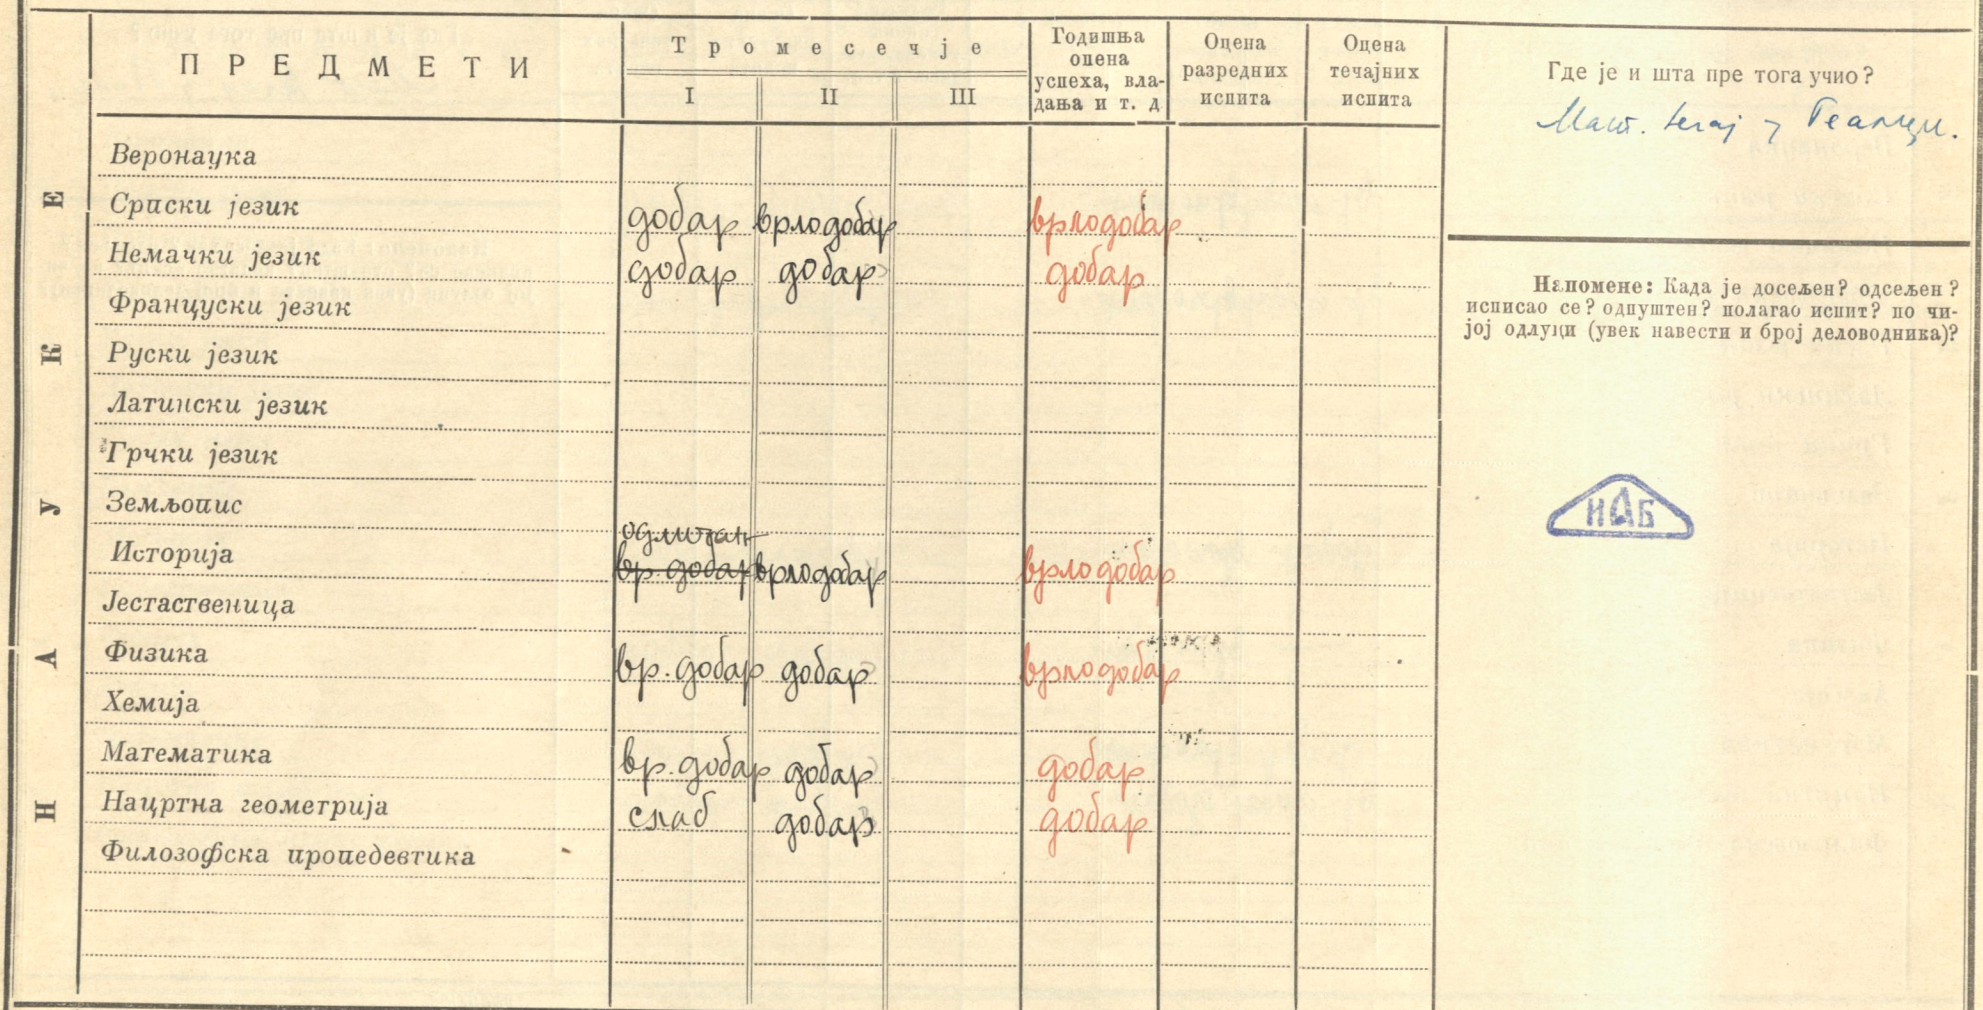 НАУКЕ
ПРЕДМЕТИ
Тромесечје
I II III
Годишња
оцена
успеха, вла-
дања и т. д
Оцена
разредних
испита
Оцена
течајних
испита
Где је и шта пре тога учио?
Веронаука
Српски језик добар врло добар врло добар
Немачки језик добар добар добар
Француски језик
Руски језик
Латински језик
Грчки језик
Земљопис
одличан
Историја вр. добар врло добар врло добар
Јестаственица
Физика вр. добар добар врло добар
Хемија
Математика вр. добар добар добар
Нацртна геометрија слаб добар добар
Филозофска пропедевтика
Напомене: Када је досељен? одсељен?
исписао се? одпуштен? полагао испит? по чи-
јој одлуци (увек навести и број деловодника)?
ИАБ